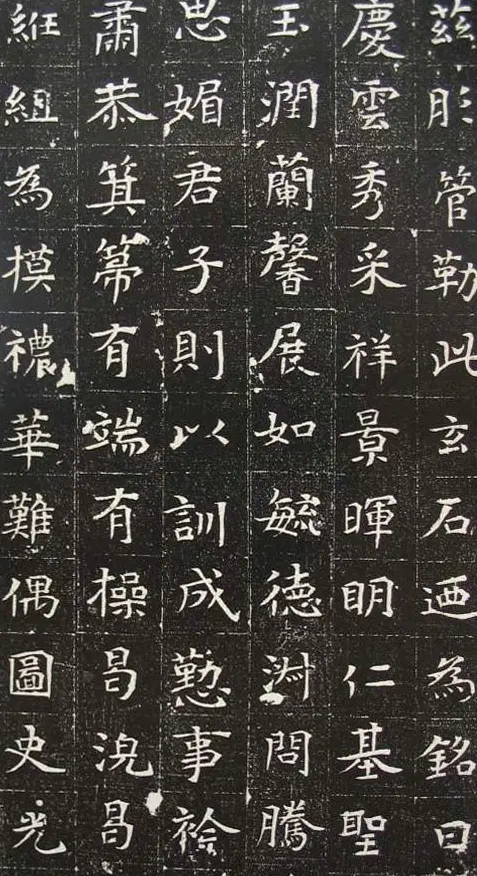 茲彤管勒此玄石迺為銘曰
慶雲秀采祥景暉明仁基聖
玉潤蘭馨展如毓德淑問騰
思媚君子則以訓成懃事袷
肅恭箕箒有端有操曷浣曷
紝組為摸襛華難偶圖史光